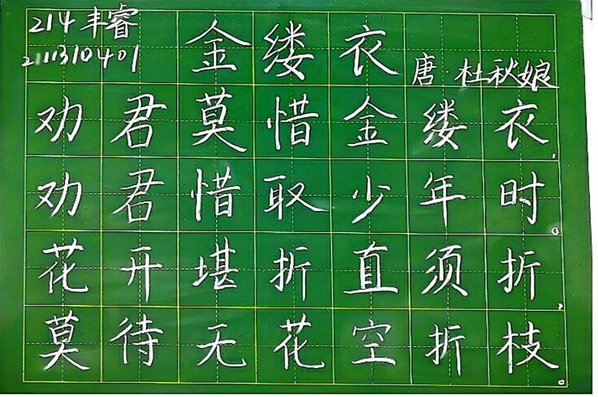 214 丰睿
2111310401
金缕衣
唐·杜秋娘
劝君莫惜金缕衣,
劝君惜取少年时。
花开堪折直须折,
莫待无花空折枝。